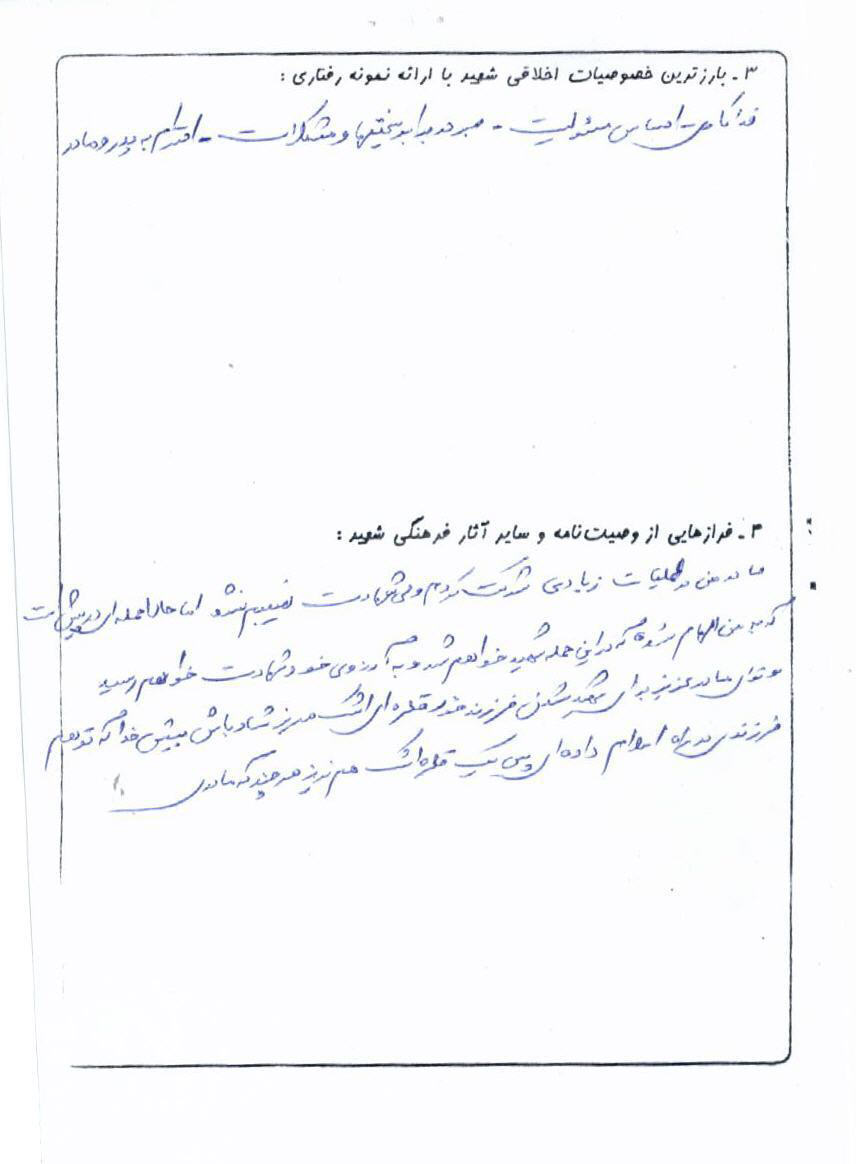 ۳ـ بارزترین خصوصیات اخلاقی شهید با ارائه نمونه رفتاری :
فداکاری - احساس مسئولیت - صبر در برابر سختیها و مشکلات - احترام به پدر و مادر
۴ـ فرازهایی از وصیت‌نامه و سایر آثار فرهنگی شهید :
مادر من در عملیات زیادی شرکت کردم ولی شهادت نصیبم نشد اما حالا حمله‌ای در پیش است
که به من الهام شده که در این حمله شهید خواهم شد و به آرزوی خود شهادت خواهم رسید
و تو ای مادر عزیز برای شهید شدن فرزند خود قطره ای اشک مریز شاد باش پیش خدا که تو هم
فرزندی در راه اسلام داده‌ای پس یک قطره اشک هم نریز هر چند که مادری